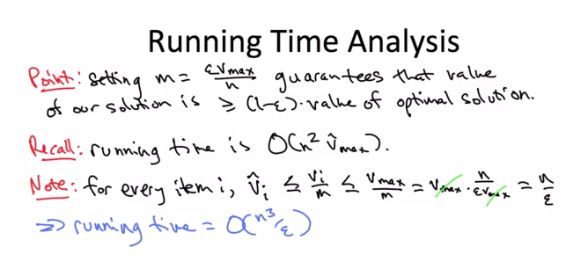 Running Time Analysis
Point: setting m = εVmax/n guarantees that value
of our solution is ≥ (1-ε)·value of optimal solution.
Recall: running time is O(n² v̂max).
Note: for every item i, v̂i ≤ vi/m ≤ vmax/m = vmax · n/εvmax = n/ε
⇒ running time = O(n³/ε)